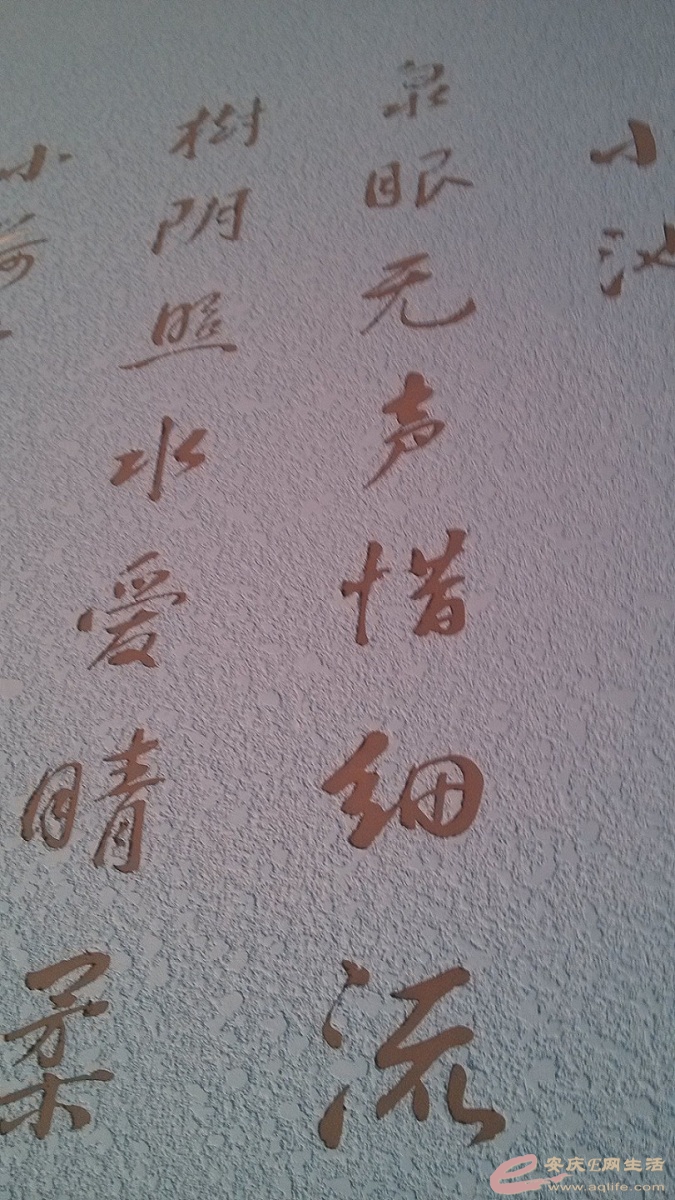 小池
泉眼无声惜细流
樹阴照水爱晴柔
小荷
安庆E网生活
www.aqlife.com